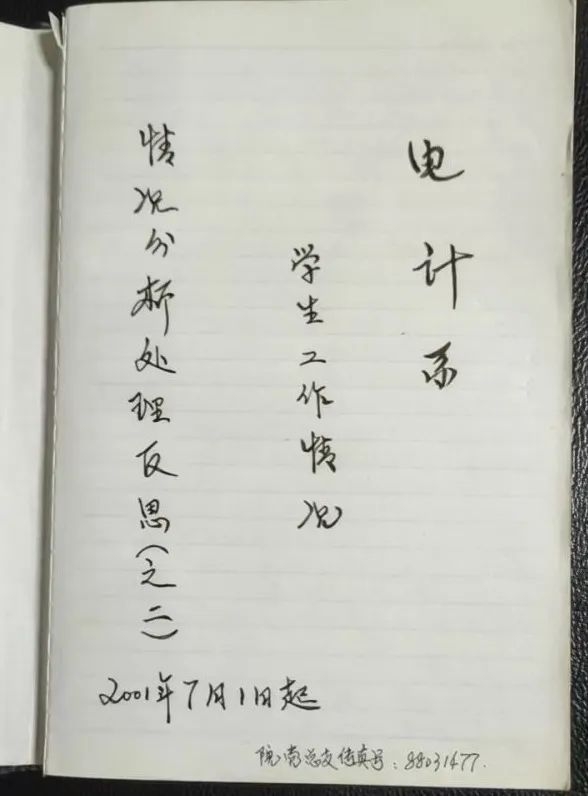 电计系
学生工作情况
情况分析处理反思(之二)
2001年7月1日起
院党总支传真号:88031477.